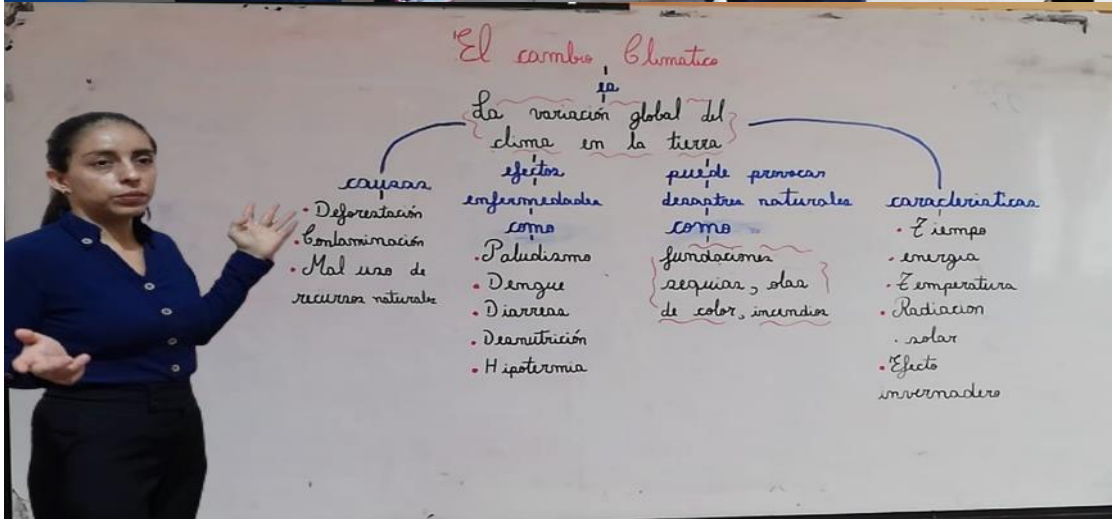 El cambio Climatico
es
La variación global del
clima en la tierra
causas
• Deforestación
• Contaminación
• Mal uso de
recursos naturales
efectos
enfermedades
como
• Paludismo
• Dengue
• Diarreas
• Desnutrición
• Hipotermia
puede provocar
desastres naturales
como
fundaciones
sequias, olas
de color, incendios
caracteristicas
• Tiempo
• energia
• Temperatura
• Radiacion
• solar
• Efecto
invernadero